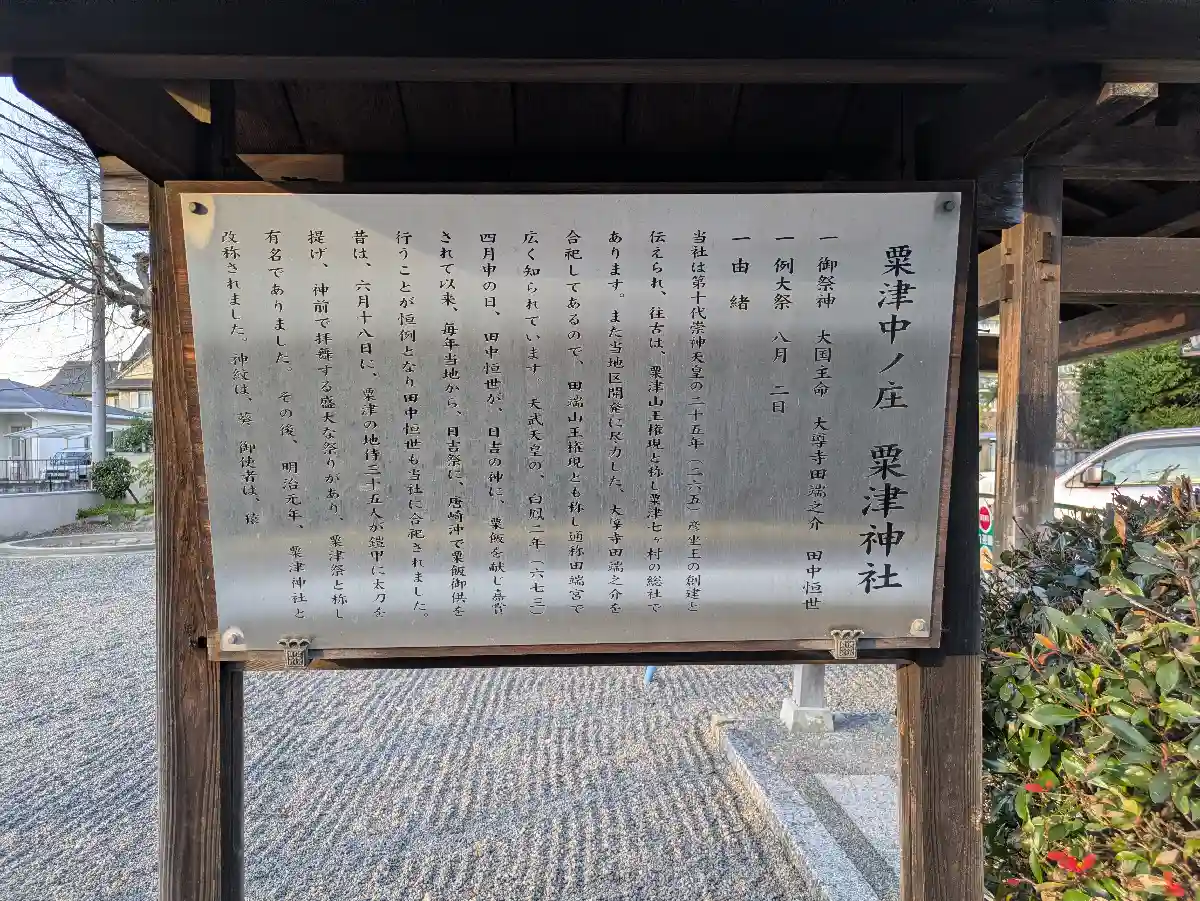 粟津中ノ庄　粟津神社
一　御祭神　大国主命　大導寺田端之介　田中恒世
一　例大祭　八月　二日
一　由　緒
当社は第十代崇神天皇の二十五年（一六五）彦坐王の創建と
伝えられ、往古は、粟津山王権現と称し粟津七ヶ村の総社で
あります。また当地区開発に尽力した、大導寺田端之介を
合祀してあるので、田端山王権現とも称し通称田端宮で
広く知られています。天武天皇の、白鳳二年（六七三）
四月申の日、田中恒世が、日吉の神に、粟飯を献じ嘉賞
されて以来、毎年当地から、日吉祭に、唐崎沖で粟飯御供を
行うことが恒例となり田中恒世も当社に合祀されました。
昔は、六月十八日に、粟津の地侍三十五人が鎧甲に太刀を
提げ、神前で拝舞する盛大な祭りがあり、粟津祭と称し
有名でありました。その後、明治元年、粟津神社と
改称されました。神紋は、葵　御使者は、猿